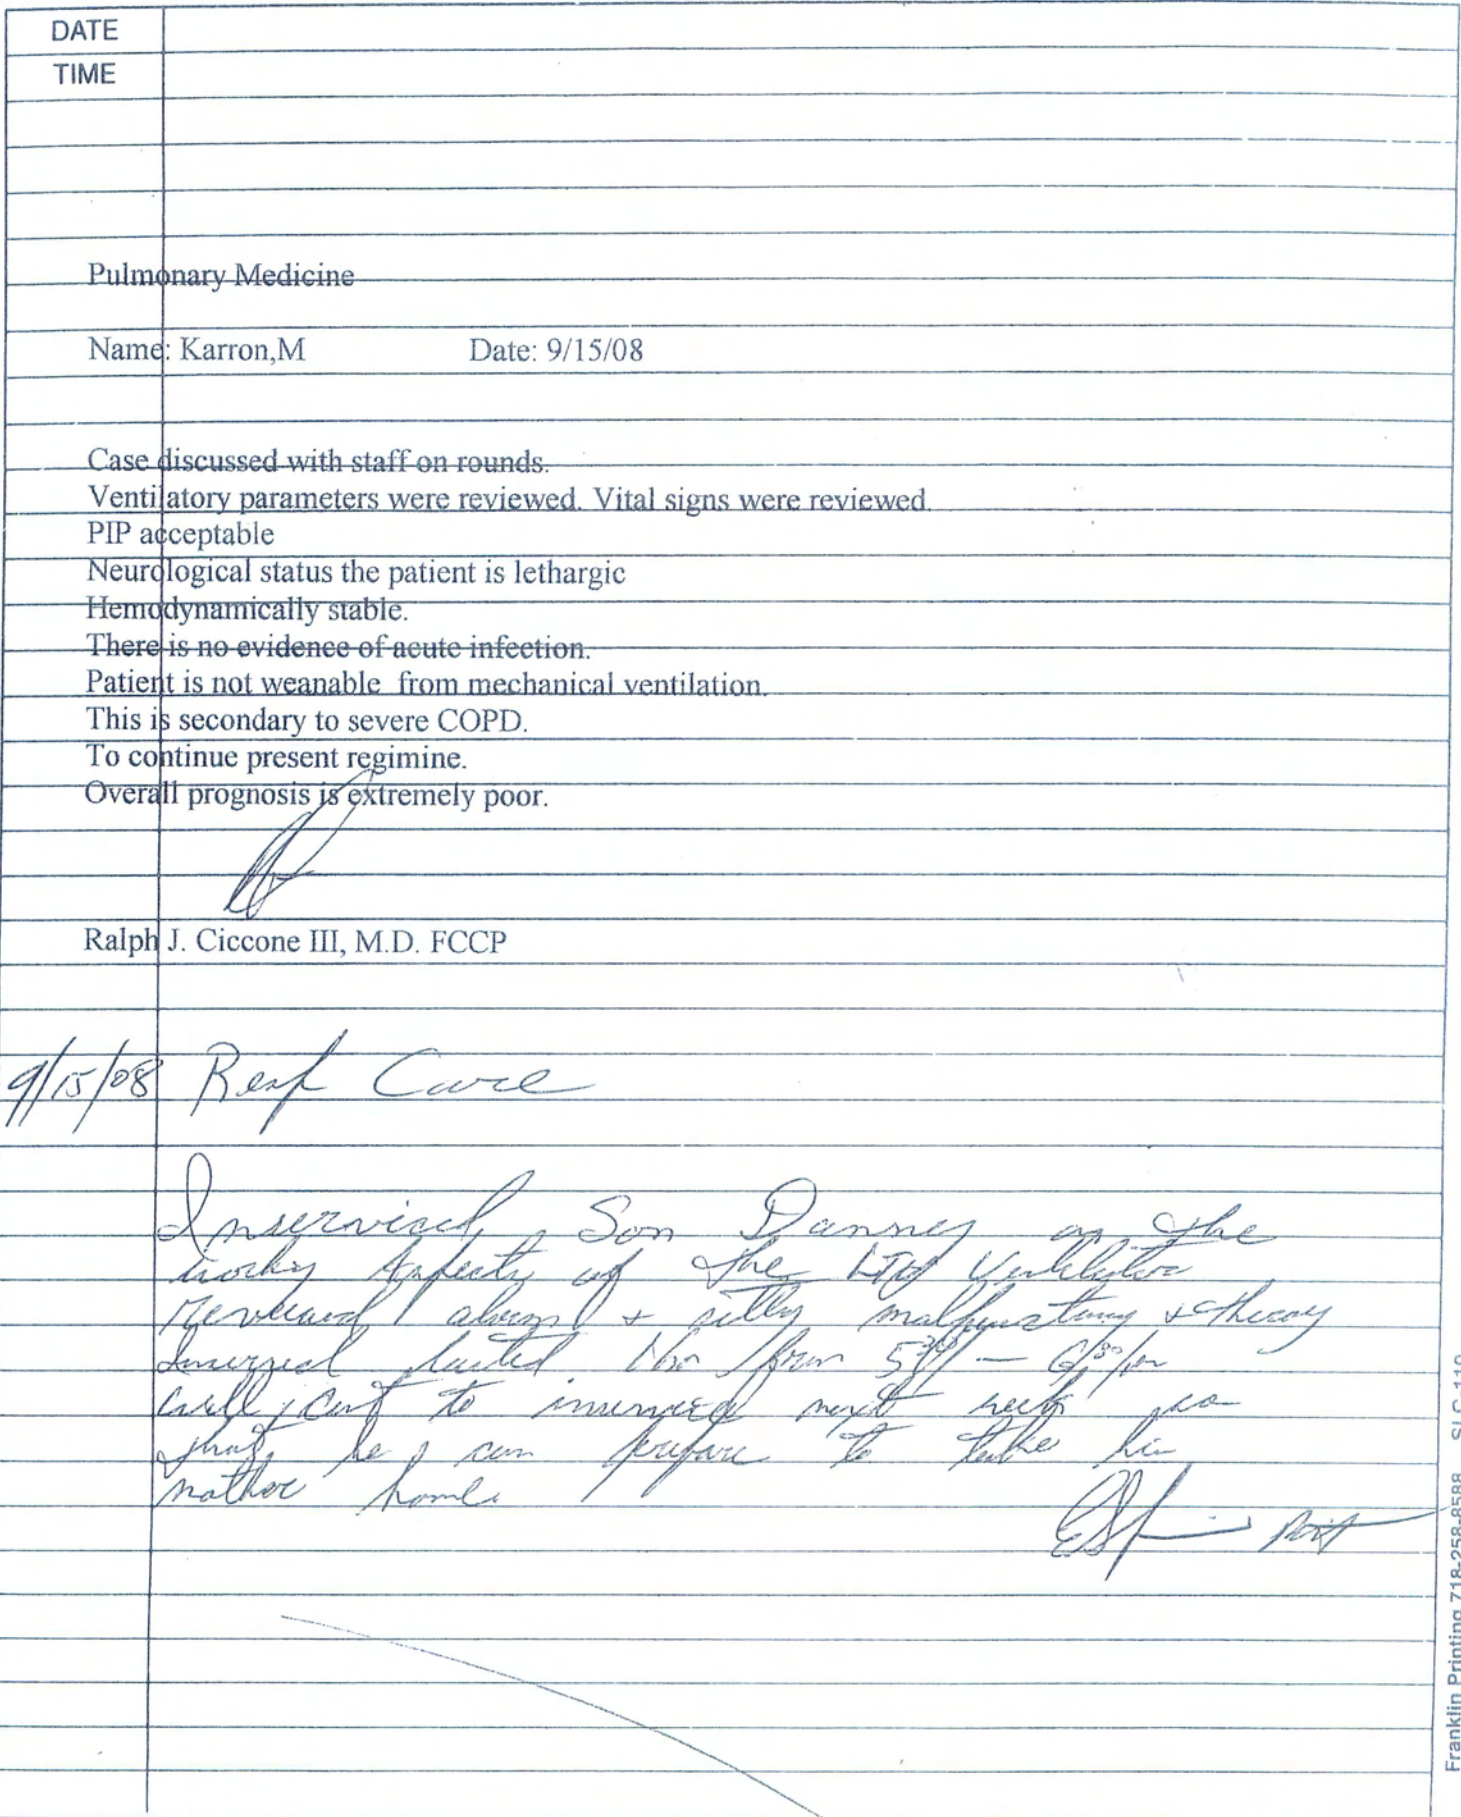 DATE
TIME
Pulmonary Medicine
Name: Karron,M Date: 9/15/08
Case discussed with staff on rounds.
Ventilatory parameters were reviewed. Vital signs were reviewed.
PIP acceptable
Neurological status the patient is lethargic
Hemodynamically stable.
There is no evidence of acute infection.
Patient is not weanable from mechanical ventilation.
This is secondary to severe COPD.
To continue present regimine.
Overall prognosis is extremely poor.
Ralph J. Ciccone III, M.D. FCCP
9/15/08 Resp Care
Inserviced Son Danney on the
working Aspects of the LTV Ventilator
Reviewed alarms + malfunctions +
Inserviced lasted 1hr from
will cont to inserviced next week so
that he can prepare to take his
mother home.
Franklin Printing 718-258-8588 SLC-110